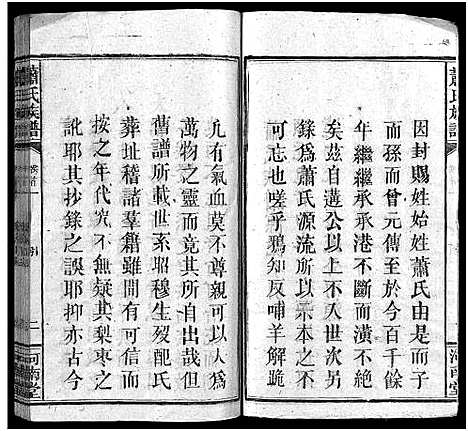 蕭氏族譜
因封賜姓始姓蕭氏由是而子
而孫而曾元傳至於今百千餘
年繼繼承承港不斷而潢不絕
矣茲自遘公以上不入世次另
錄爲蕭氏源流所以崇本之不
可忘也嗟乎鴉知反哺羊解跪
河南堂
凡有氣血莫不尊親可以人爲
萬物之靈而竟其所自出哉但
舊譜所載世系昭穆生歿配氏
葬址稽諸羣籍雖間有可信而
按之年代究不無疑其梨棗之
訛耶其抄錄之誤耶抑亦古今
蕭氏族譜
卷首
引
二
河南堂